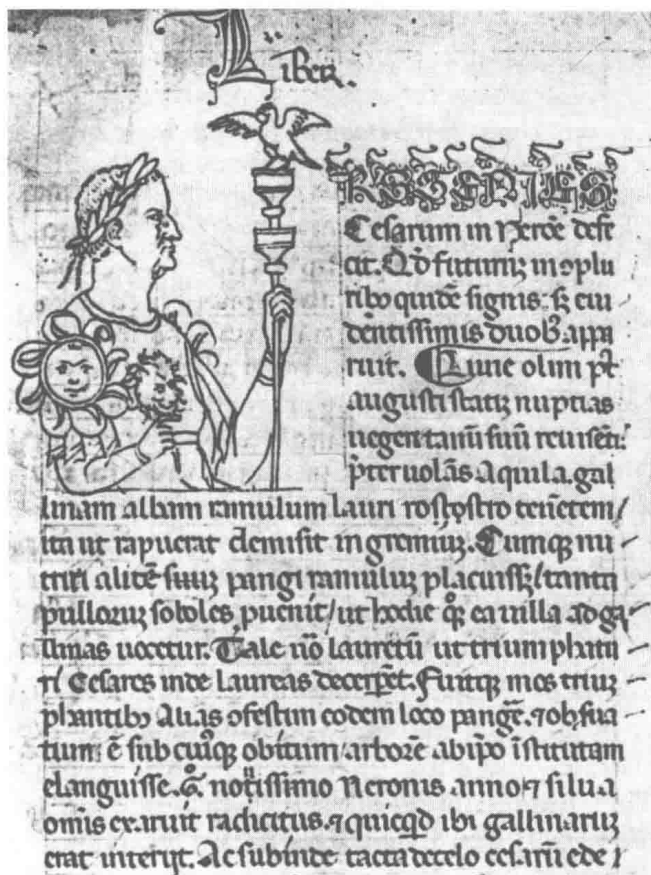 Liber
PROGENIES
Cesarum in Nerõe defe
cit. Qđ futurũ ꝯplu
ribꝰ quidẽ signis. sꝫ eui
dentissimis duobꝫ. appa
ruit. Liuie olim p̃t
augusti statiꝫ nuptias
uegentanũ suũ reuisẽti:
p̃teruolãs Aquila. gal
linam albam ramulum lauri rostro tenẽtem/
ita ut rapuerat demisit in gremiuꝫ. Cumqꝫ nu
triri alitẽ suuꝫ pangi ramuluꝫ placuissꝫ/tanta
pulloruꝫ soboles puenit/ut hodie qꝫ ea uilla ad ga
llinas uocetur. Tale uõ lauretũ ut triumphatu
ri Cesares inde laureas decerpẽt. Fuitqꝫ mos triuꝫ
phantibꝰ Alias ꝯfestim eodem loco pangẽ. ⁊ obsua
tum ẽ sub cuiꝰqꝫ obitum/arborẽ ab ip̃o ĩstitutam
elanguisse. g̃ nouissimo Neronis anno ⁊ silua
om̃is exaruit radicitus. ⁊ quicqd ibi gallinaruꝫ
erat interiit. Ac subinde tacta de celo cesarũ ede